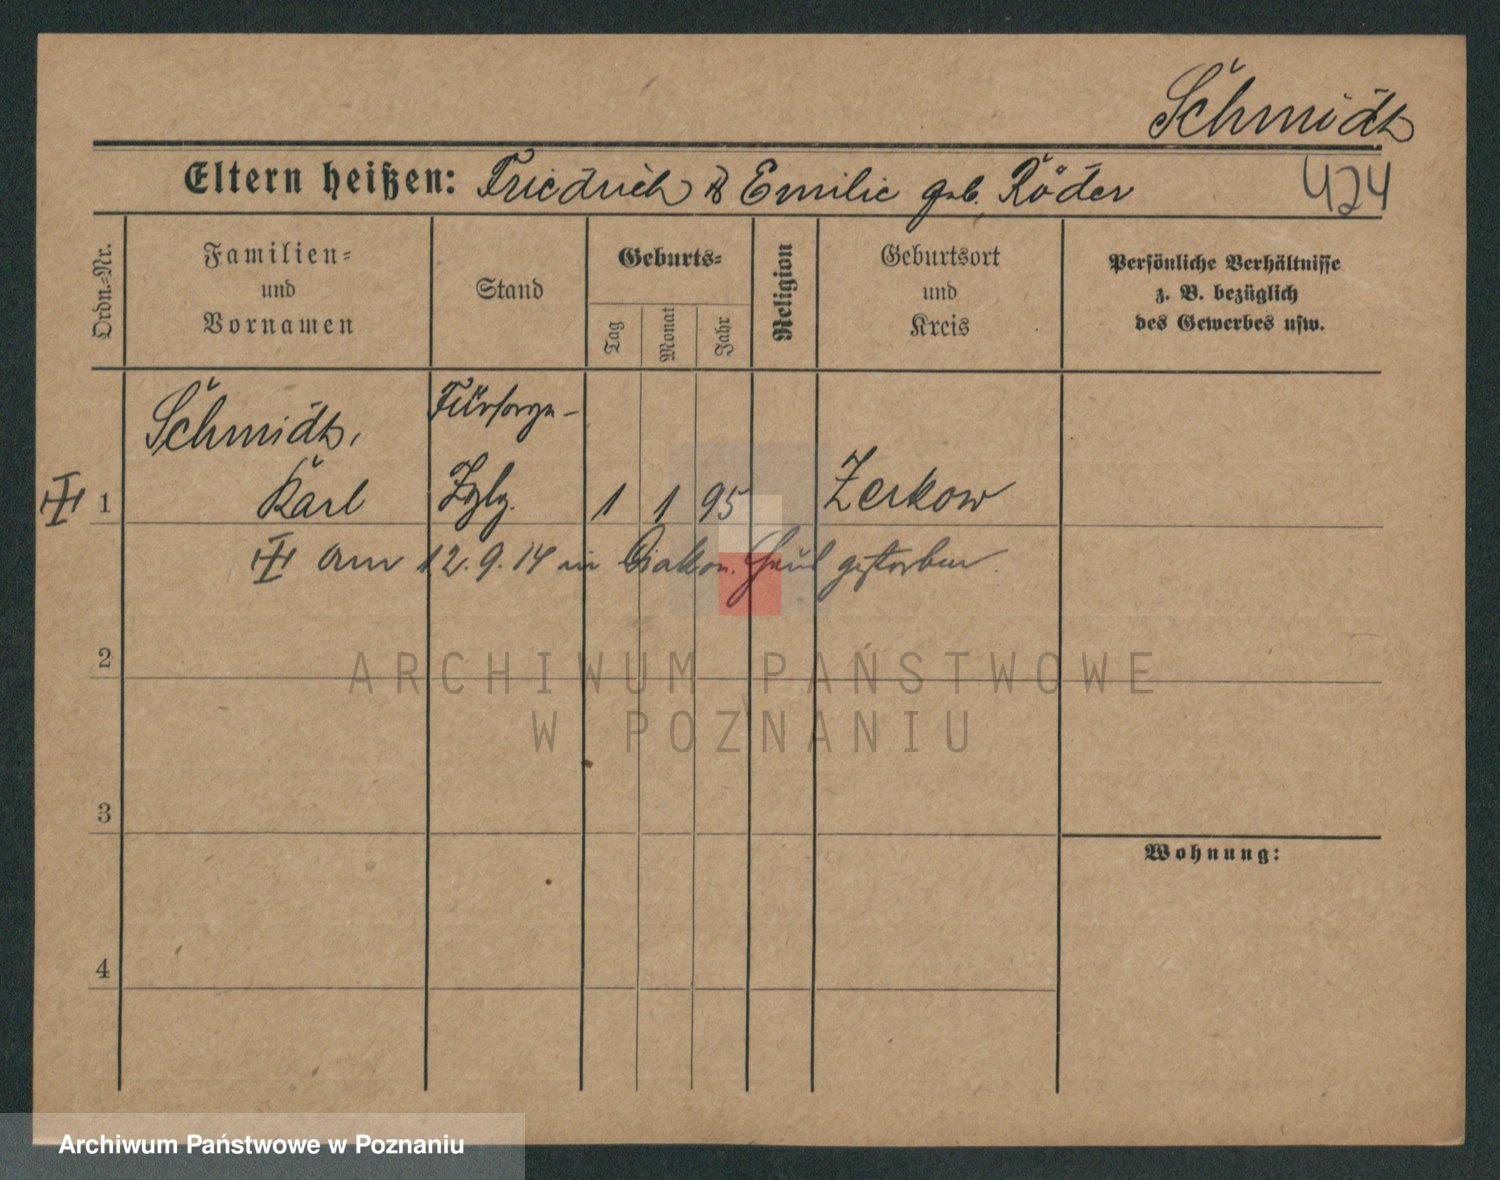 Schmidt
Eltern heißen: Friedrich & Emilie geb. Röder 424
Ordn.-Nr.
Familien-
und
Vornamen
Stand
Geburts-
Tag
Monat
Jahr
Religion
Geburtsort
und
Kreis
Persönliche Verhältnisse
z. B. bezüglich
des Gewerbes usw.
Schmidt, Fürsorge-
1 Karl Zglg. 1 1 95 Zerkow
am 12.9.14 in Diakon. Haus gestorben.
2
ARCHIWUM PAŃSTWOWE
W POZNANIU
3
Wohnung:
4
Archiwum Państwowe w Poznaniu